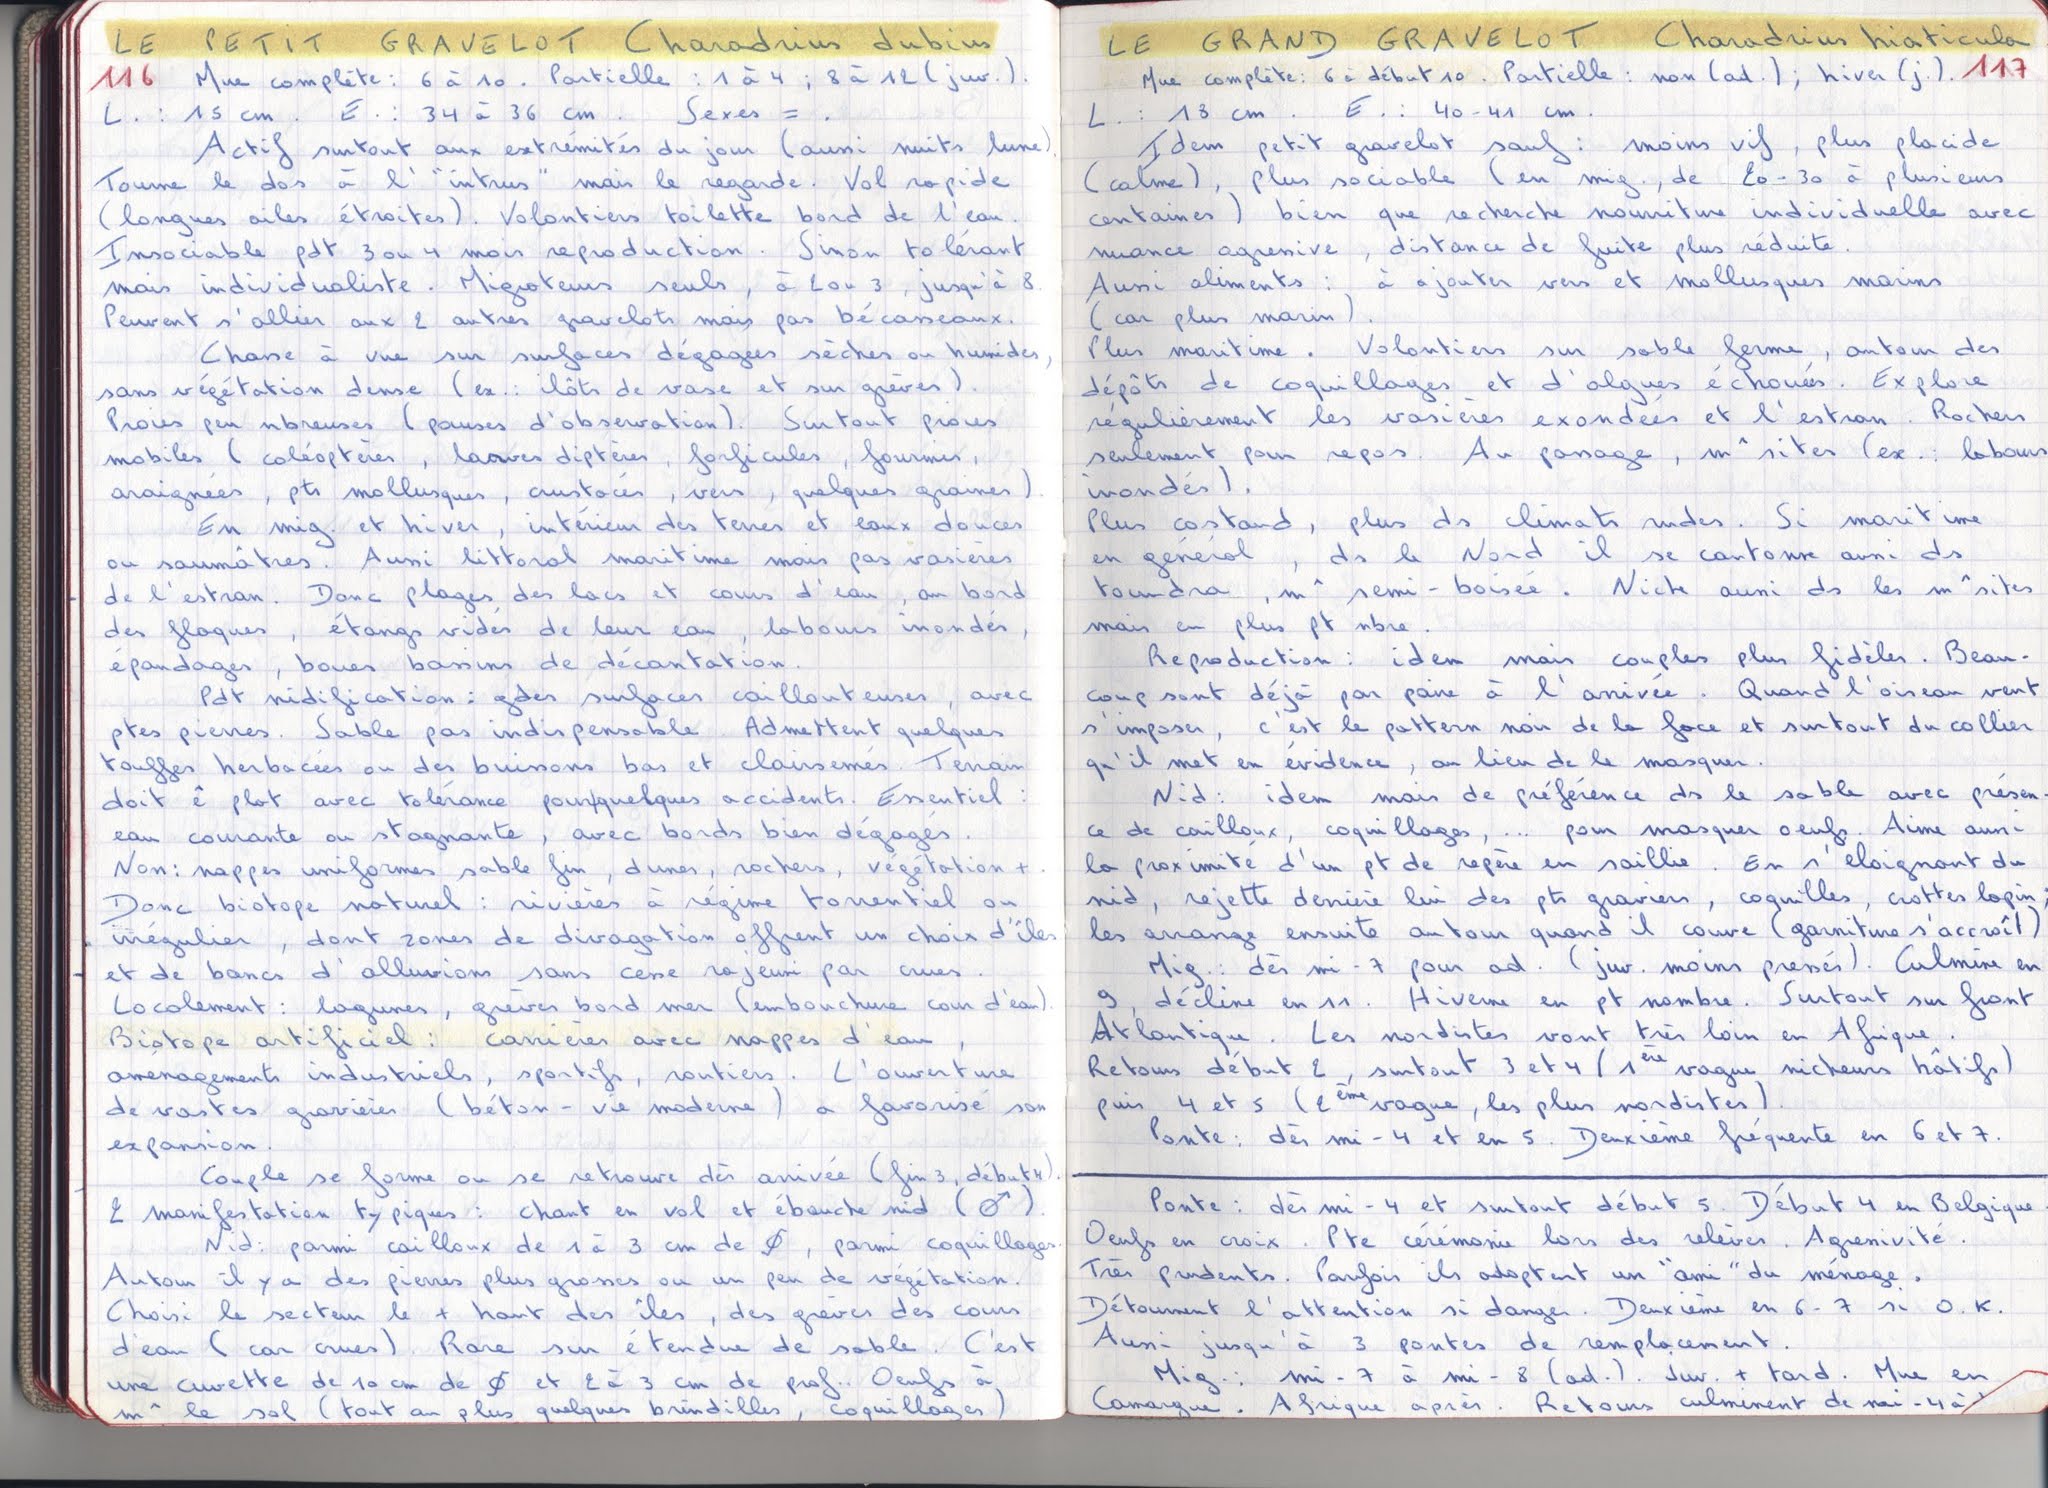 LE PETIT GRAVELOT Charadrius dubius
116 Mue complète : 6 à 10. Partielle : 1 à 4 ; 8 à 12 (juv.).
L. : 15 cm. E. : 34 à 36 cm. Sexes = .
Actif surtout aux extrémités du jour (aussi nuits lune).
Tourne le dos à l'"intrus" mais le regarde. Vol rapide
(longues ailes étroites). Volontiers toilette bord de l'eau.
Insociable pdt 3 ou 4 mois reproduction. Sinon tolérant
mais individualiste. Migrateurs seuls, à 2 ou 3, jusqu'à 8.
Peuvent s'allier aux 2 autres gravelots mais pas bécasseaux.
Chasse à vue sur surfaces dégagées sèches ou humides,
sans végétation dense (ex. : îlôts de vase et sur grèves).
Proies peu nbreuses (pauses d'observation). Surtout proies
mobiles (coléoptères, larves diptères, forficules, fourmis,
araignées, pts mollusques, crustacés, vers, quelques graines).
En mig. et hiver, intérieur des terres et eaux douces
ou saumâtres. Aussi littoral maritime mais pas vasières
de l'estran. Donc plages des lacs et cours d'eau, au bord
des flaques, étangs vidés de leur eau, labours inondés,
épandages, boues bassins de décantation.
Pdt nidification : gdes surfaces caillouteuses, avec
ptes pierres. Sable pas indispensable. Admettent quelques
touffes herbacées ou des buissons bas et clairsemés. Terrain
doit ê plat avec tolérance pour quelques accidents. Essentiel :
eau courante ou stagnante, avec bords bien dégagés.
Non : nappes uniformes sable fin, dunes, rochers, végétation +.
Donc biotope naturel : rivières à régime torrentiel ou
irrégulier, dont zones de divagation offrent un choix d'îles
et de bancs d'alluvions sans cesse rajeuni par crues.
Localement : lagunes, grèves bord mer (embouchure cour d'eau).
Biotope artificiel : carrières avec nappes d'eau,
aménagements industriels, sportifs, routiers. L'ouverture
de vastes gravières (béton - vie moderne) a favorisé son
expansion.
Couple se forme ou se retrouve dès arrivée (fin 3, début 4).
2 manifestation typiques : chant en vol et ébauche nid (♂).
Nid : parmi cailloux de 1 à 3 cm de Ø, parmi coquillages.
Autour il y a des pierres plus grosses ou un peu de végétation.
Choisi le secteur le + haut des îles, des grèves des cours
d'eau (car crues). Rare sur étendue de sable. C'est
une cuvette de 10 cm de Ø et 2 à 3 cm de prof.. Oeufs à
m^ le sol (tout au plus quelques brindilles, coquillages)
LE GRAND GRAVELOT Charadrius hiaticula
Mue complète : 6 à début 10. Partielle : non (ad.) ; hiver (j.). 117
L. : 19 cm. E. : 40-41 cm.
Idem petit gravelot sauf : moins vif, plus placide
(calme), plus sociable (en mig., de 20-30 à plusieurs
centaines) bien que recherche nourriture individuelle avec
nuance agressive, distance de fuite plus réduite.
Aussi aliments : à ajouter vers et mollusques marins
(car plus marin).
Plus maritime. Volontiers sur sable ferme, autour des
dépôts de coquillages et d'algues échoués. Explore
régulièrement les vasières exondées et l'estran. Rochers
seulement pour repos. Au passage, m^ sites (ex. : labours
inondés).
Plus costaud, plus ds climats rudes. Si maritime
en général, ds le Nord il se cantonne aussi ds
toundra, m^ semi-boisée. Niche aussi ds les m^ sites
mais en plus pt nbre.
Reproduction : idem mais couples plus fidèles. Beau-
coup sont déjà par paire à l'arrivée. Quand l'oiseau veut
s'imposer, c'est le pattern noir de la face et surtout du collier
qu'il met en évidence, au lieu de le masquer.
Nid : idem mais de préférence ds le sable avec présen-
ce de cailloux, coquillages, ... pour masquer oeufs. Aime aussi
la proximité d'un pt de repère en saillie. En s'éloignant du
nid, rejette derrière lui des pts graviers, coquilles, crottes lapin ;
les arrange ensuite autour quand il couve (garniture s'accroît)
Mig. : dès mi-7 pour ad. (juv. moins pressés). Culmine en
9, décline en 11. Hiverne en pt nombre. Surtout sur front
Atlantique. Les nordistes vont très loin en Afrique.
Retours début 2, surtout 3 et 4 (1ère vague nicheurs hâtifs)
puis 4 et 5 (2ème vague, les plus nordistes).
Ponte : dès mi-4 et en 5. Deuxième fréquente en 6 et 7.
Ponte : dès mi-4 et surtout début 5. Début 4 en Belgique.
Oeufs en croix. Pte cérémonie lors des relèves. Agressivité.
Très prudents. Parfois ils adoptent un "ami" du ménage.
Détournent l'attention si danger. Deuxième en 6-7 si O.K.
Aussi jusqu'à 3 pontes de remplacement.
Mig. : mi-7 à mi-8 (ad.). Juv. + tard. Mue en
Camargue. Afrique après. Retours culminent de mi-4 à